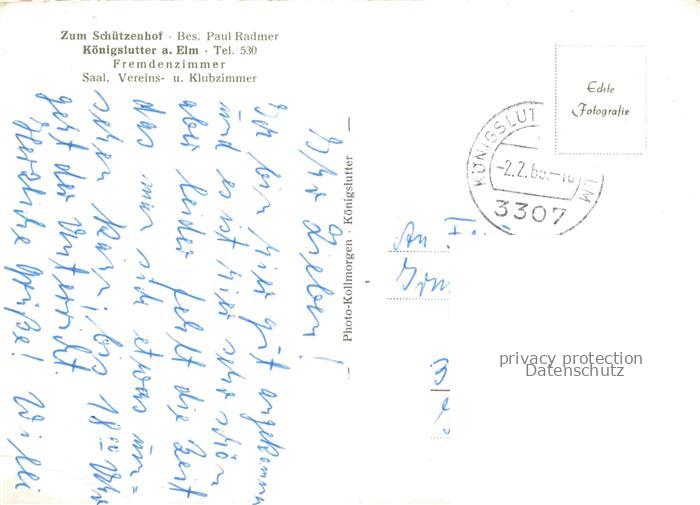 Zum Schützenhof · Bes. Paul Radmer
Königslutter a. Elm · Tel. 530
Fremdenzimmer
Saal, Vereins- u. Klubzimmer
Ihr Lieben!
Ich bin hier gut angekommen
und es ist hier sehr schön
aber leider fehlt die Zeit
das man sich etwas um=
sehen kann, bis 18 00 Uhr
geht der Unterricht.
Herzliche Grüße! Willi
Photo-Kollmorgen · Königslutter
Echte
Fotografie
KÖNIGSLUT LM
3307
An
privacy protection
Datenschutz